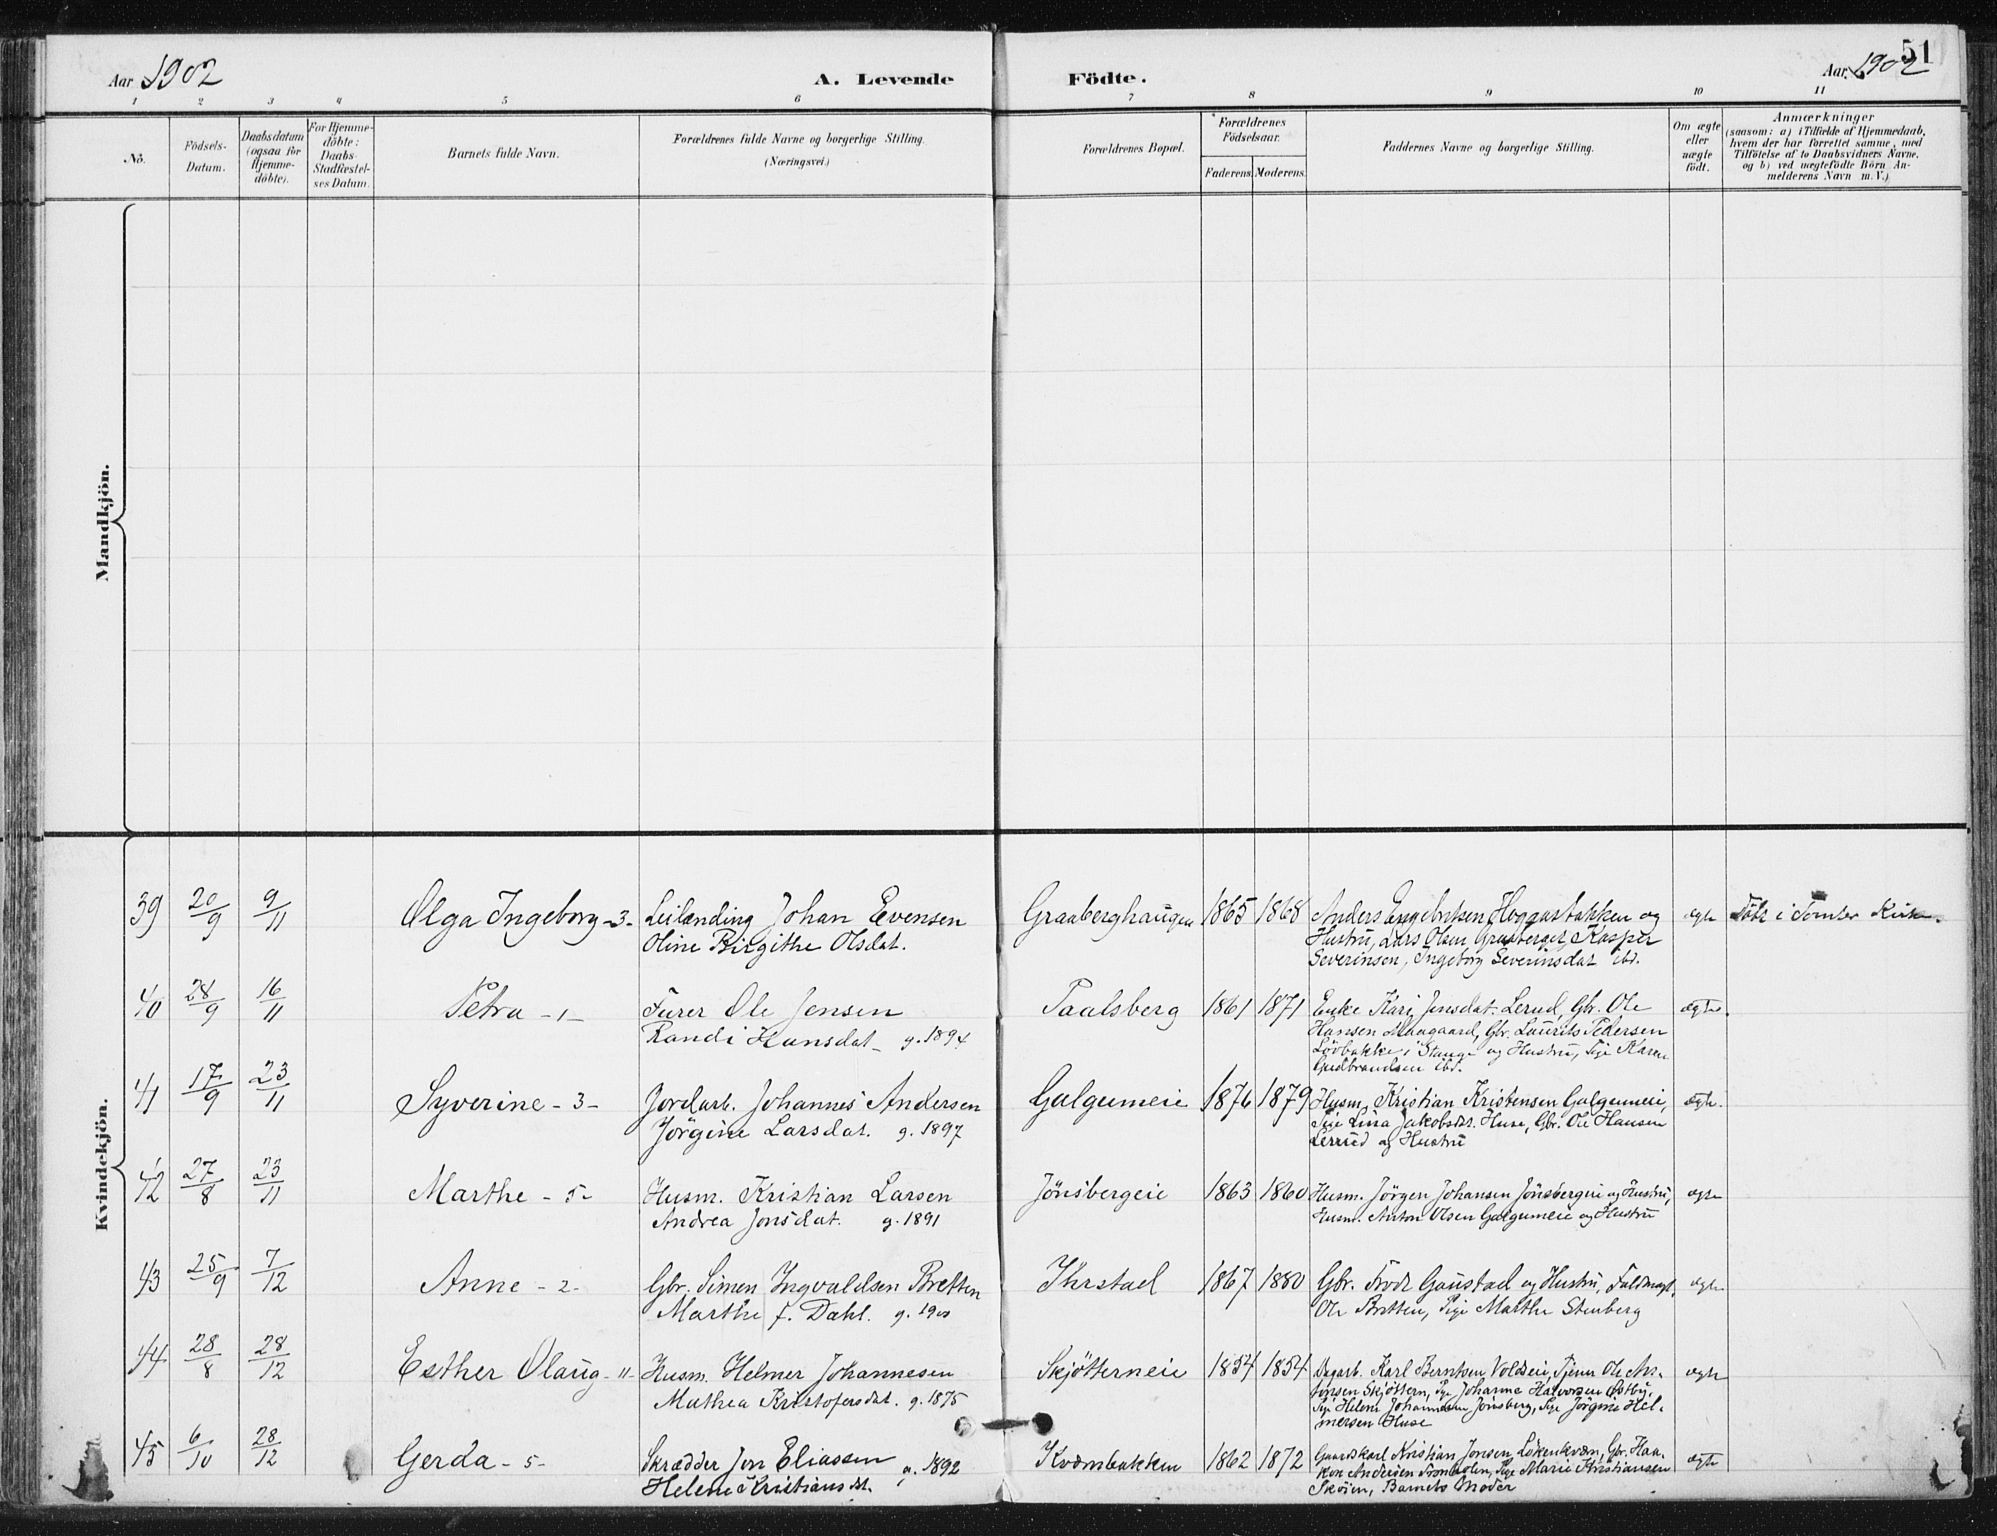 Aar 1902
A. Levende Födte.
Aar 1902
51
1 2 3 4 5 6 7 8 9 10 11
Nô.
Födsels-Datum.
Daabsdatum (ogsaa for Hjemme-döbte).
For Hjemme-döbte: Daabs-Stadfæstel-ses Datum.
Barnets fulde Navn.
Forældrenes fulde Navne og borgerlige Stilling.
(Næringsvei.)
Forældrenes Bopæl.
Forældrenes Födselsaar.
Faderens. Moderens.
Faddernes Navne og borgerlige Stilling.
Om ægte eller uægte födt.
Anmærkninger
(saasom: a) i Tilfælde af Hjemmedaab,
hvem der har forrettet samme, med
Tilföielse af to Daabsvidners Navne,
og b) ved uægtefödte Börn An-
melderens Navn m. V.)
Mandkjön.
Kvindekjön.
39 20/9 9/11 Olga Ingeborg -3- Leilænding Johan Evensen Graaberghaugen 1865 1868 Anders Engebretsen og ægte Födt i Tomter Kirke.
Oline Birgithe Olsdat. Hustru, Lars Olsen Graaberget, Kasper
Severinsen, Ingeborg Severinsdat ibd.
40 28/9 16/11 Petra -1- Furer Ole Jensen Paalsberg 1861 1871 Enke Kari Jensdat. Lerud, Gbr. Ole ægte.
Randi Hansdat g. 1894 Hansen Gbr. Laurits Pedersen
Lövbakke i Stange og Hustru, Pige Karen
Gudbrandsen ibd.
41 17/9 23/11 Syverine -3- Jordarb. Johannes Andersen Galgumeie 1876 1879 Husm. Kristian Kristensen Galgumeie, ægte.
Jörgine Larsdat. g. 1897 Pige Lina Jakobsdt. Huse, Gbr. Ole Hansen
Lerrud og Hustru
42 27/8 23/11 Marthe -5- Husm. Kristian Larsen Jönsbergeie 1863 1860 Husm. Jörgen Johansen Jönsbergeie og Hustru, ægte
Andrea Jonsdat. g. 1891 Husm. Anton Olsen Galgumeie og Hustru
43 25/9 7/12 Anne -2- Gbr. Simen Ingvaldsen Bretten Ihrstad 1867 1880 Gbr. Gaustad og Hustru, ægte
Marthe f. Dahl. g. 1900 Ole Britten, Pige Marthe Stenberg
44 28/8 28/12 Esther Olaug -11- Husm. Helmer Johannesen Skjötterneie 1854 1854 Dagarb. Karl Berntsen Voldseie, Tjener Ole An- ægte
Mathea Kristofersdat. g. 1875 tonsen Skjöttern, Pige Johanne Halvorsen Östby,
Pige Helene Johannesen Jönsberg, Pige Jörgine Hel-
mersen Huse
45 6/10 28/12 Gerda -5- Skrædder Jon Eliassen g. 1892 Kvæmbakken 1862 1872 Gaardskarl Kristian Jonsen Gbr. Haa- ægte
Helene Kristiansdt. kon Andersen Pige Marie Kristiansen
Skóien, Barnets Moder